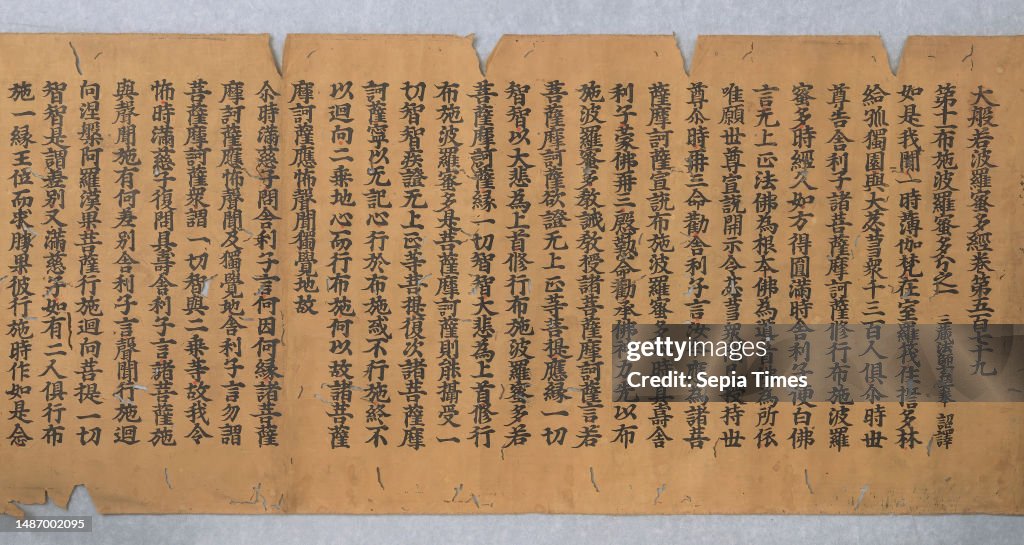 大般若波羅蜜多經卷第五百七十九
第十一布施波羅蜜多分之一 三藏法師玄奘 詔譯
如是我聞一時薄伽梵在室羅筏住誓多林
給孤獨園與大苾芻眾千二百人俱尒時世
尊告舍利子諸菩薩摩訶薩修行布施波羅
蜜多時經人如方得圓滿時舍利子便白佛
言无上正法佛為根本佛為 為所依
唯願世尊宣說開示令苾芻眾 持世
尊尒時再三命勸舍利子言汝 應為諸菩
薩摩訶薩宣說布施波羅蜜多時具壽舍
利子蒙佛再三慇懃命勸承佛 力先以布
施波羅蜜多教誡教授諸菩薩摩訶薩言若
菩薩摩訶薩欲證无上正等菩提應緣一切
智智以大悲為上首修行布施波羅蜜多若
菩薩摩訶薩緣一切智智大悲為上首修行
布施波羅蜜多是菩薩摩訶薩則能攝受一
切智智疾證无上正等菩提復次諸菩薩摩
訶薩寧以无記心行於布施或不行施終不
以迴向二乘地心而行布施何以故諸菩薩
摩訶薩應怖聲聞獨覺地故
尒時滿慈子問舍利子言何因何緣諸菩薩
摩訶薩應怖聲聞及獨覺地舍利子言勿謂
菩薩摩訶薩眾謂一切智與二乘等故我令
怖時滿慈子復問具壽舍利子言諸菩薩施
與聲聞施有何差別舍利子言聲聞行施迴
向涅槃阿羅漢果菩薩行施迴向菩提一切
智智是謂差別又滿慈子如有二人俱行布
施一緣王位而求勝果彼行施時作如是念
gettyimages
Credit: Sepia Times
1487002095